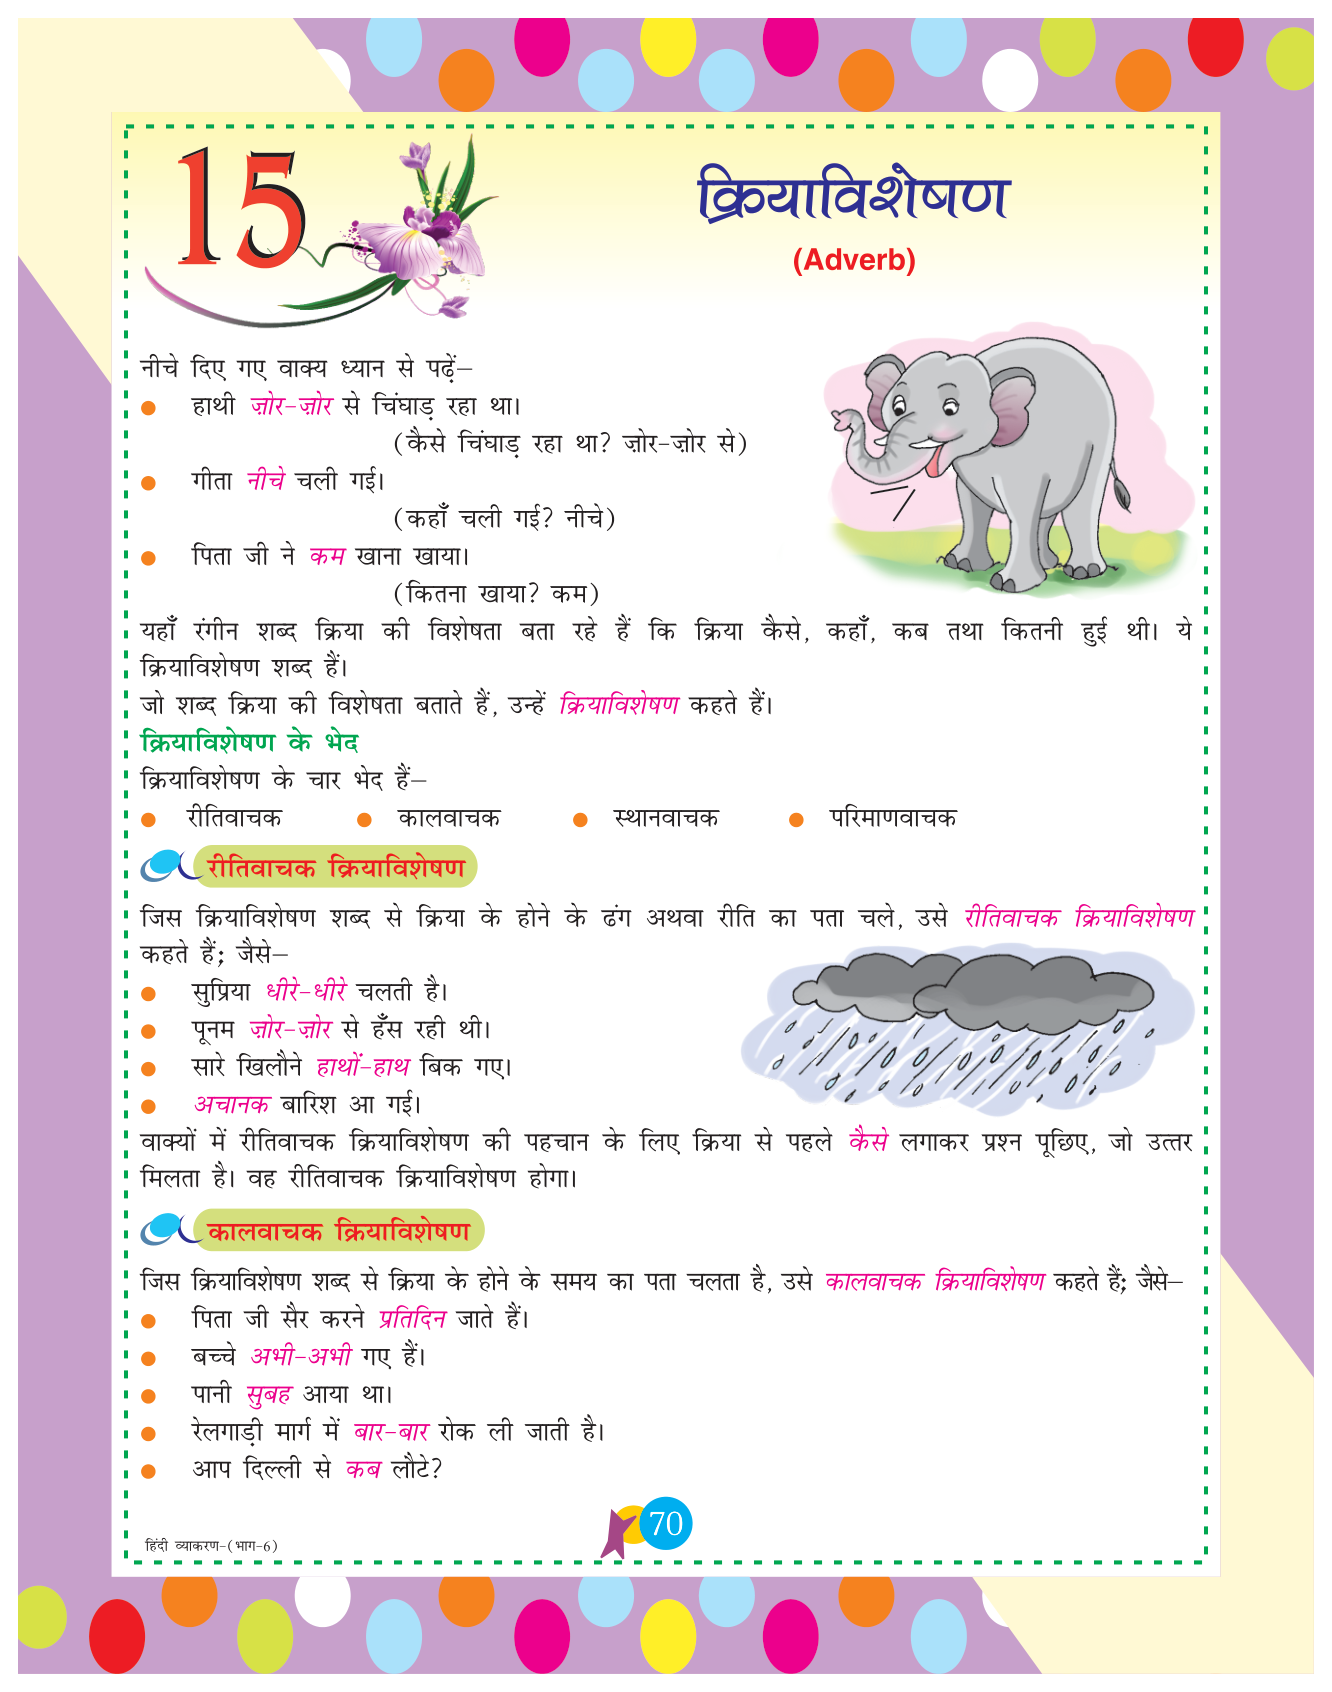 15
क्रियाविशेषण
(Adverb)
नीचे दिए गए वाक्य ध्यान से पढ़ें–
● हाथी ज़ोर-ज़ोर से चिंघाड़ रहा था।
(कैसे चिंघाड़ रहा था? ज़ोर-ज़ोर से)
● गीता नीचे चली गई।
(कहाँ चली गई? नीचे)
● पिता जी ने कम खाना खाया।
(कितना खाया? कम)
यहाँ रंगीन शब्द क्रिया की विशेषता बता रहे हैं कि क्रिया कैसे, कहाँ, कब तथा कितनी हुई थी। ये
क्रियाविशेषण शब्द हैं।
जो शब्द क्रिया की विशेषता बताते हैं, उन्हें क्रियाविशेषण कहते हैं।
क्रियाविशेषण के भेद
क्रियाविशेषण के चार भेद हैं–
● रीतिवाचक ● कालवाचक ● स्थानवाचक ● परिमाणवाचक
रीतिवाचक क्रियाविशेषण
जिस क्रियाविशेषण शब्द से क्रिया के होने के ढंग अथवा रीति का पता चले, उसे रीतिवाचक क्रियाविशेषण
कहते हैं; जैसे–
● सुप्रिया धीरे-धीरे चलती है।
● पूनम ज़ोर-ज़ोर से हँस रही थी।
● सारे खिलौने हाथों-हाथ बिक गए।
● अचानक बारिश आ गई।
वाक्यों में रीतिवाचक क्रियाविशेषण की पहचान के लिए क्रिया से पहले कैसे लगाकर प्रश्न पूछिए, जो उत्तर
मिलता है। वह रीतिवाचक क्रियाविशेषण होगा।
कालवाचक क्रियाविशेषण
जिस क्रियाविशेषण शब्द से क्रिया के होने के समय का पता चलता है, उसे कालवाचक क्रियाविशेषण कहते हैं; जैसे–
● पिता जी सैर करने प्रतिदिन जाते हैं।
● बच्चे अभी-अभी गए हैं।
● पानी सुबह आया था।
● रेलगाड़ी मार्ग में बार-बार रोक ली जाती है।
● आप दिल्ली से कब लौटे?
70
हिंदी व्याकरण-(भाग-6)